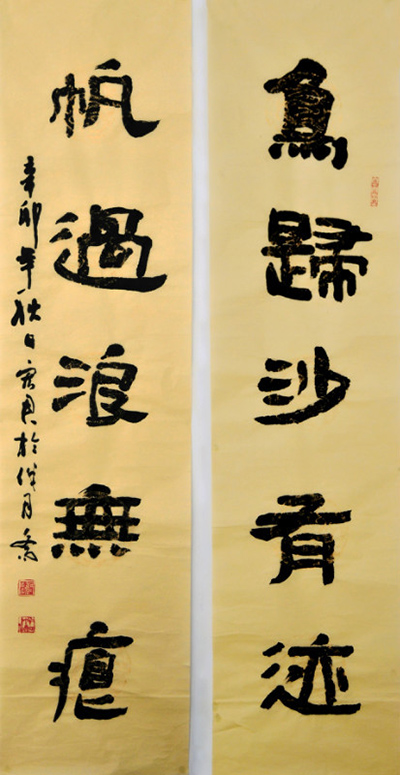 鳥歸沙有迹
帆過浪無痕
辛卯年秋日